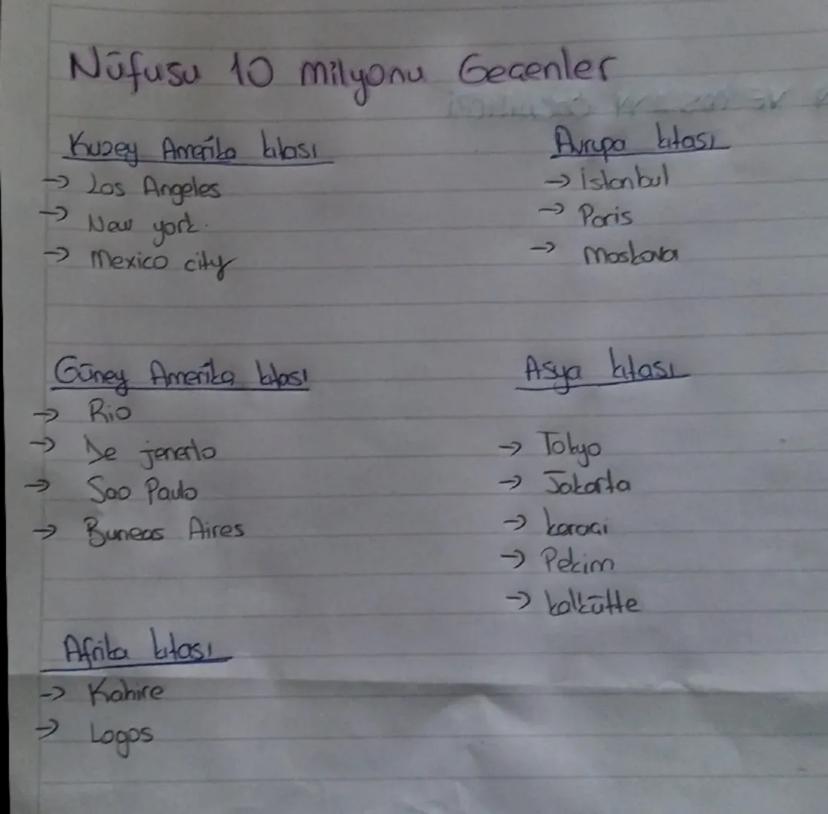 Nüfusu 10 milyonu Geçenler
Kuzey Amerika kıtası
→ Los Angeles
→ New york.
→ Mexico city
Avrupa kıtası
→ İstanbul
→ Paris
→ Moskova
Güney Amerika kıtası
→ Rio
→ De jenerlo
→ Sao Paulo
→ Buneos Aires
Asya kıtası
→ Tokyo
→ Jakarta
→ karaçi
→ Pekim
→ kalkütte
Afrika kıtası
→ Kahire
→ Logos